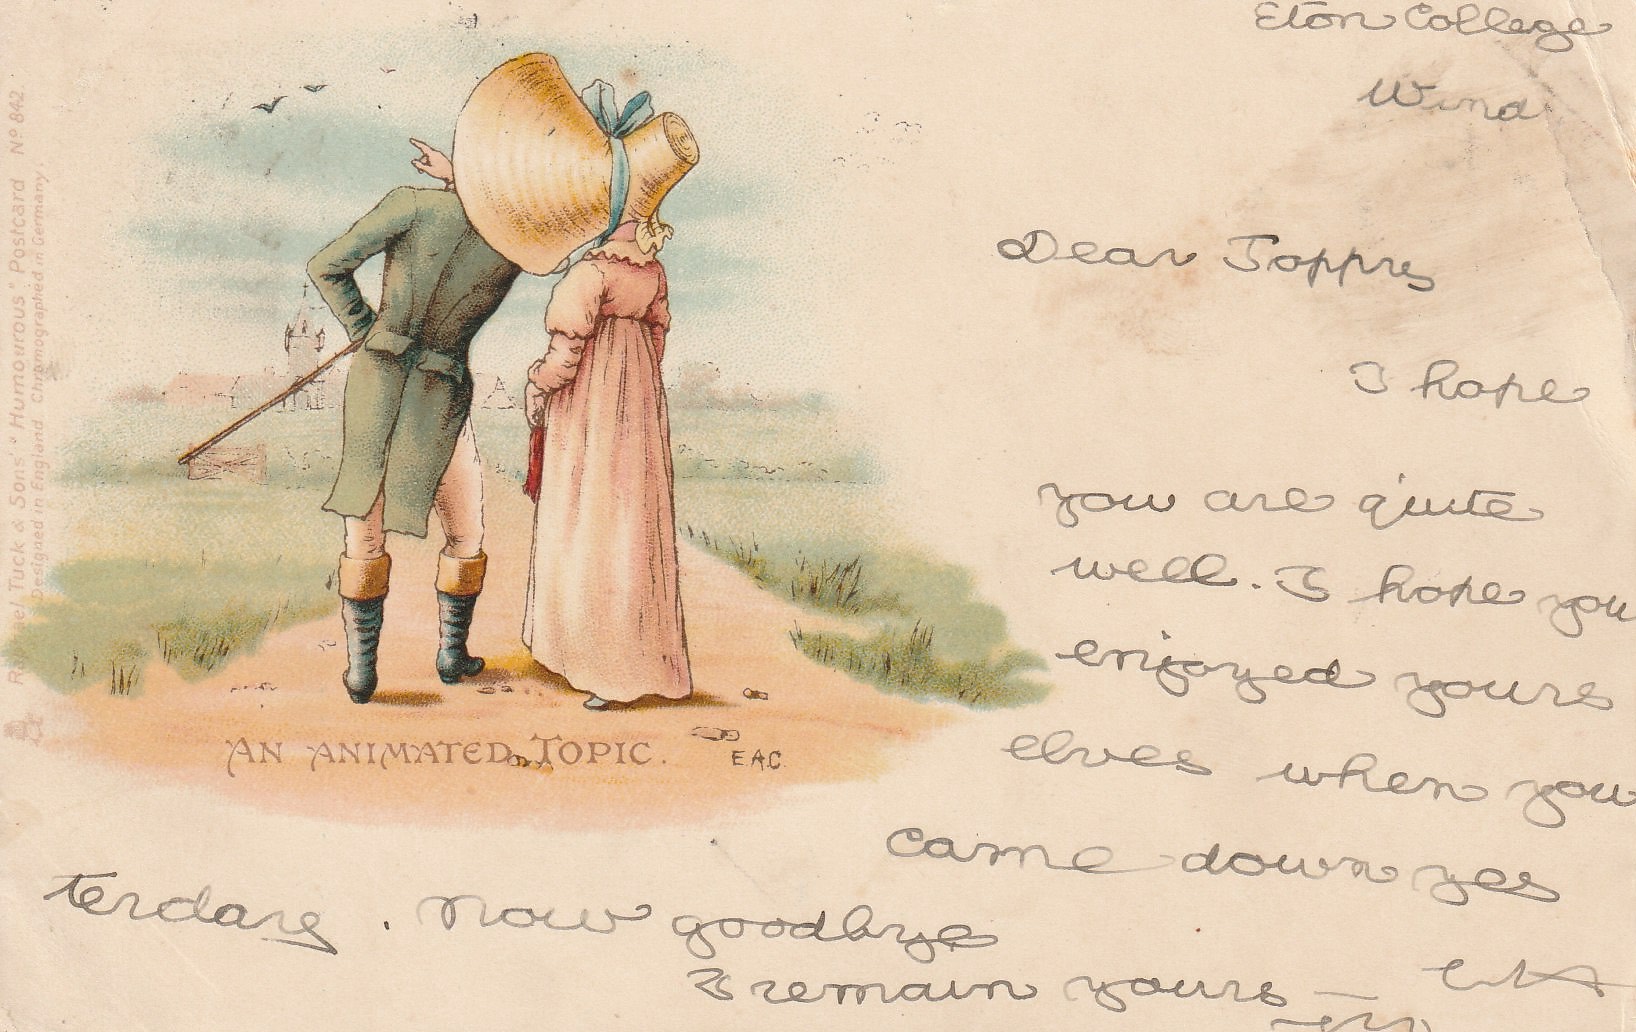 Eton College
Wind
Dear Toppy
I hope
you are quite
well. I hope you
enjoyed yours
elves when you
came down yes
terday. Now goodbye
I remain yours
AN ANIMATED TOPIC.
E.A.C.
Raphael Tuck & Sons' "Humourous" Postcard Nº 842.
Designed in England. Chromographed in Germany.